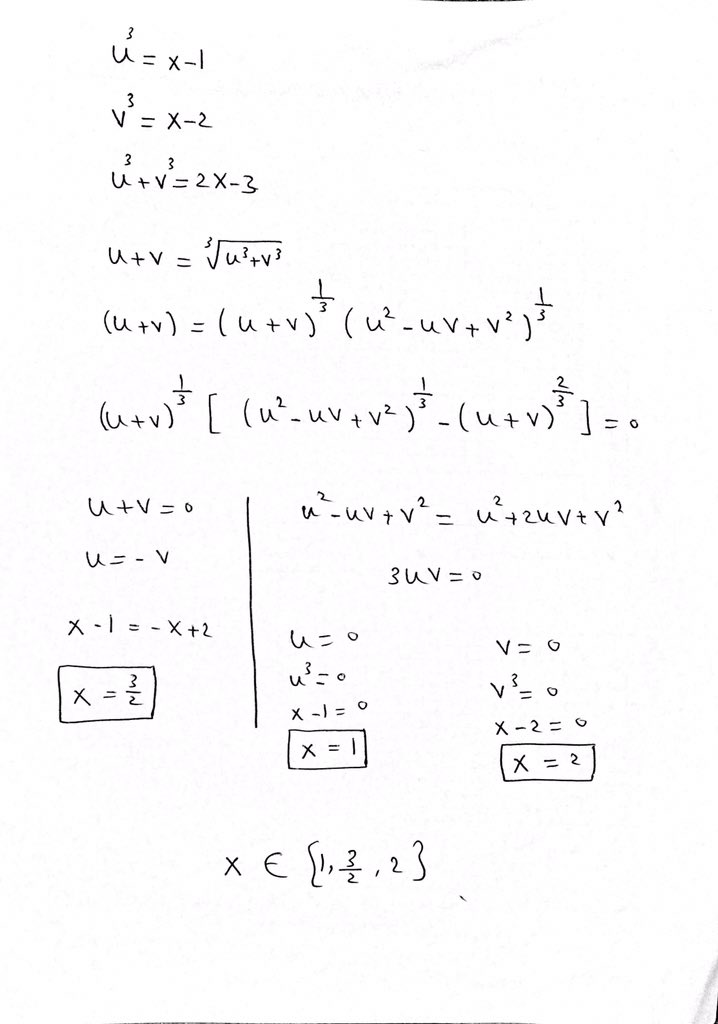 u³ = x-1
v³ = x-2
u³ + v³ = 2x-3
u+v = ³√(u³+v³)
(u+v) = (u+v)^(1/3) (u² - uv + v²)^(1/3)
(u+v)^(1/3) [ (u² - uv + v²)^(1/3) - (u+v)^(2/3) ] = 0
u+v = 0
u = -v
x-1 = -x+2
x = 3/2
u² - uv + v² = u² + 2uv + v²
3uv = 0
u = 0
u³ = 0
x-1 = 0
x = 1
v = 0
v³ = 0
x-2 = 0
x = 2
x ∈ {1, 3/2, 2}